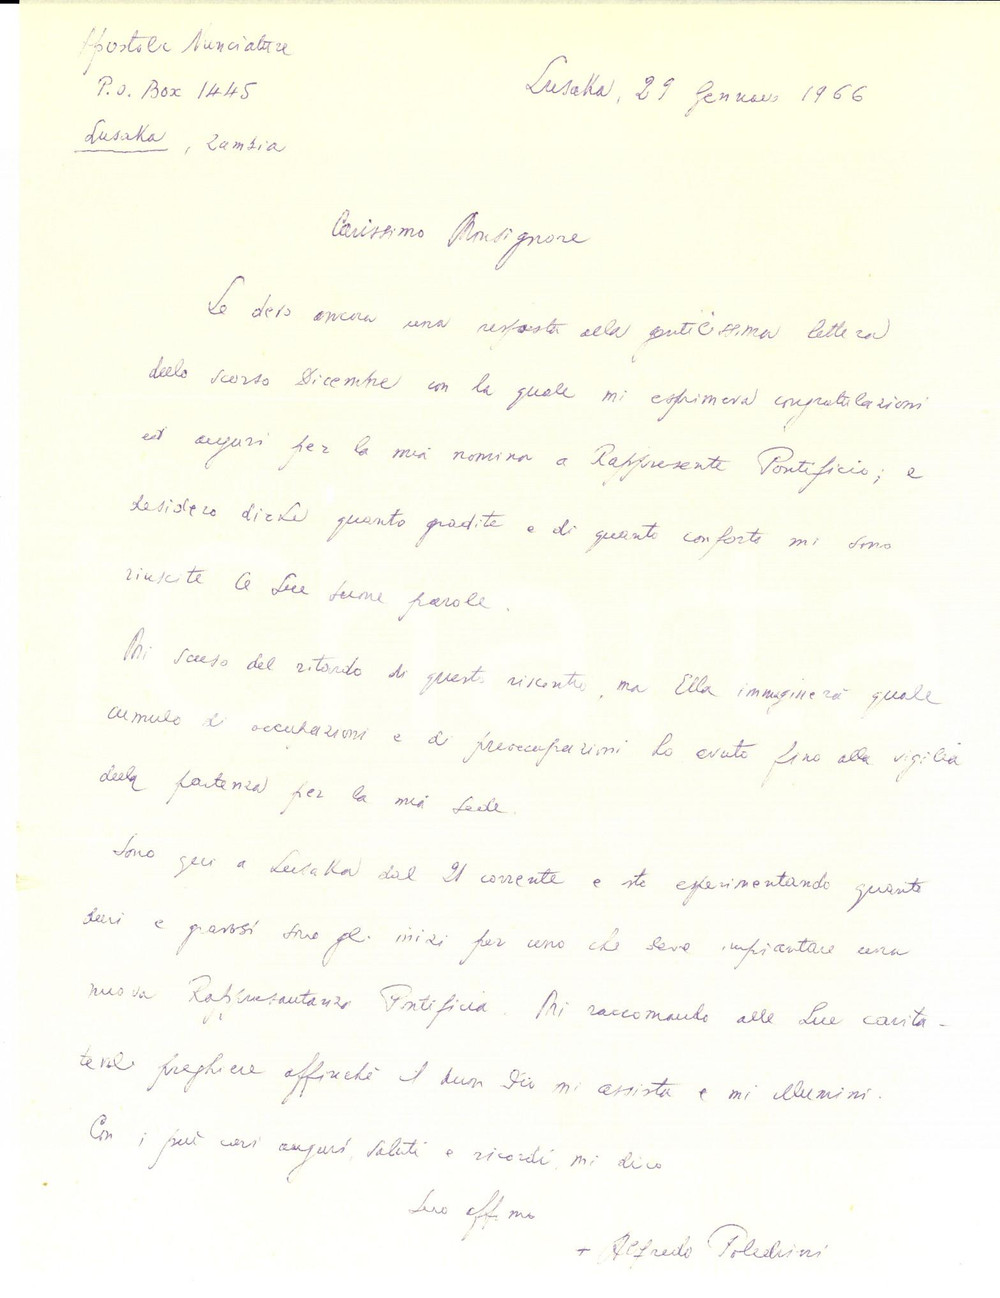 Apostolic Nunciature
P.O. Box 1445
Lusaka, Zambia
Lusaka, 29 Gennaio 1966
Carissimo Monsignore
Le devo ancora una risposta alla gentilissima lettera
dello scorso Dicembre con la quale mi esprimeva congratulazioni
ed auguri per la mia nomina a Rappresente Pontificio; e
desidero dirLe quanto gradite e di quanto conforto mi sono
riuscite le Sue buone parole.
Mi scuso del ritardo di questo riscontro, ma Ella immaginerà quale
cumulo di occupazioni e di preoccupazioni ho avuto fino alla vigilia
della partenza per la mia Sede.
Sono qui a Lusaka dal 21 corrente e sto esperimentando quanto
duri e gravosi sono gli inizi per uno che deve impiantare una
nuova Rappresentanza Pontificia. Mi raccomando alle Sue carita-
tevoli preghiere affinchè il buon Dio mi assista e mi illumini.
Con i più cari auguri, saluti e ricordi, mi dico
Suo aff.mo
+ Alfredo Poledrini